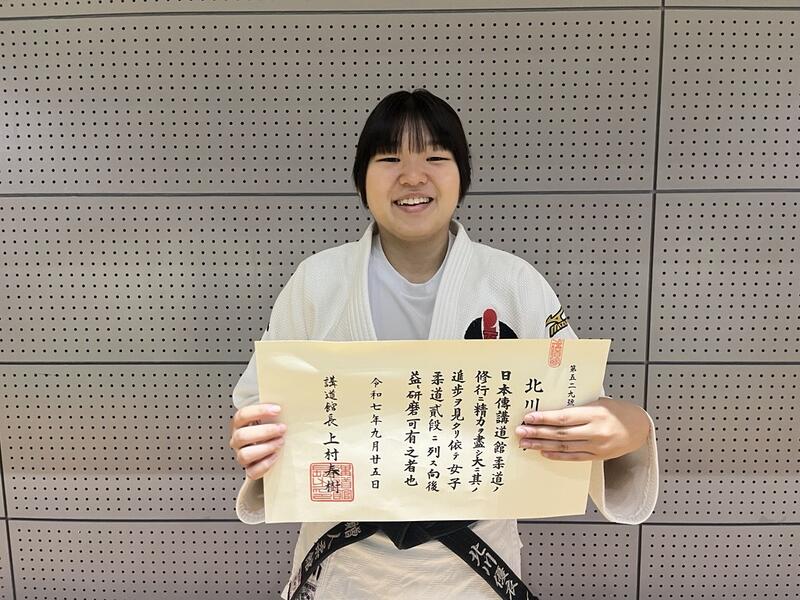 第五二九號
北川
日本傳講道館柔道ノ
修行ニ精力ヲ盡シ大ニ其ノ
進歩ヲ見タリ依テ女子
柔道貳段ニ列ス向後
益〻研磨可有之者也
令和七年九月廿五日
講道館長 上村春樹
北川優衣